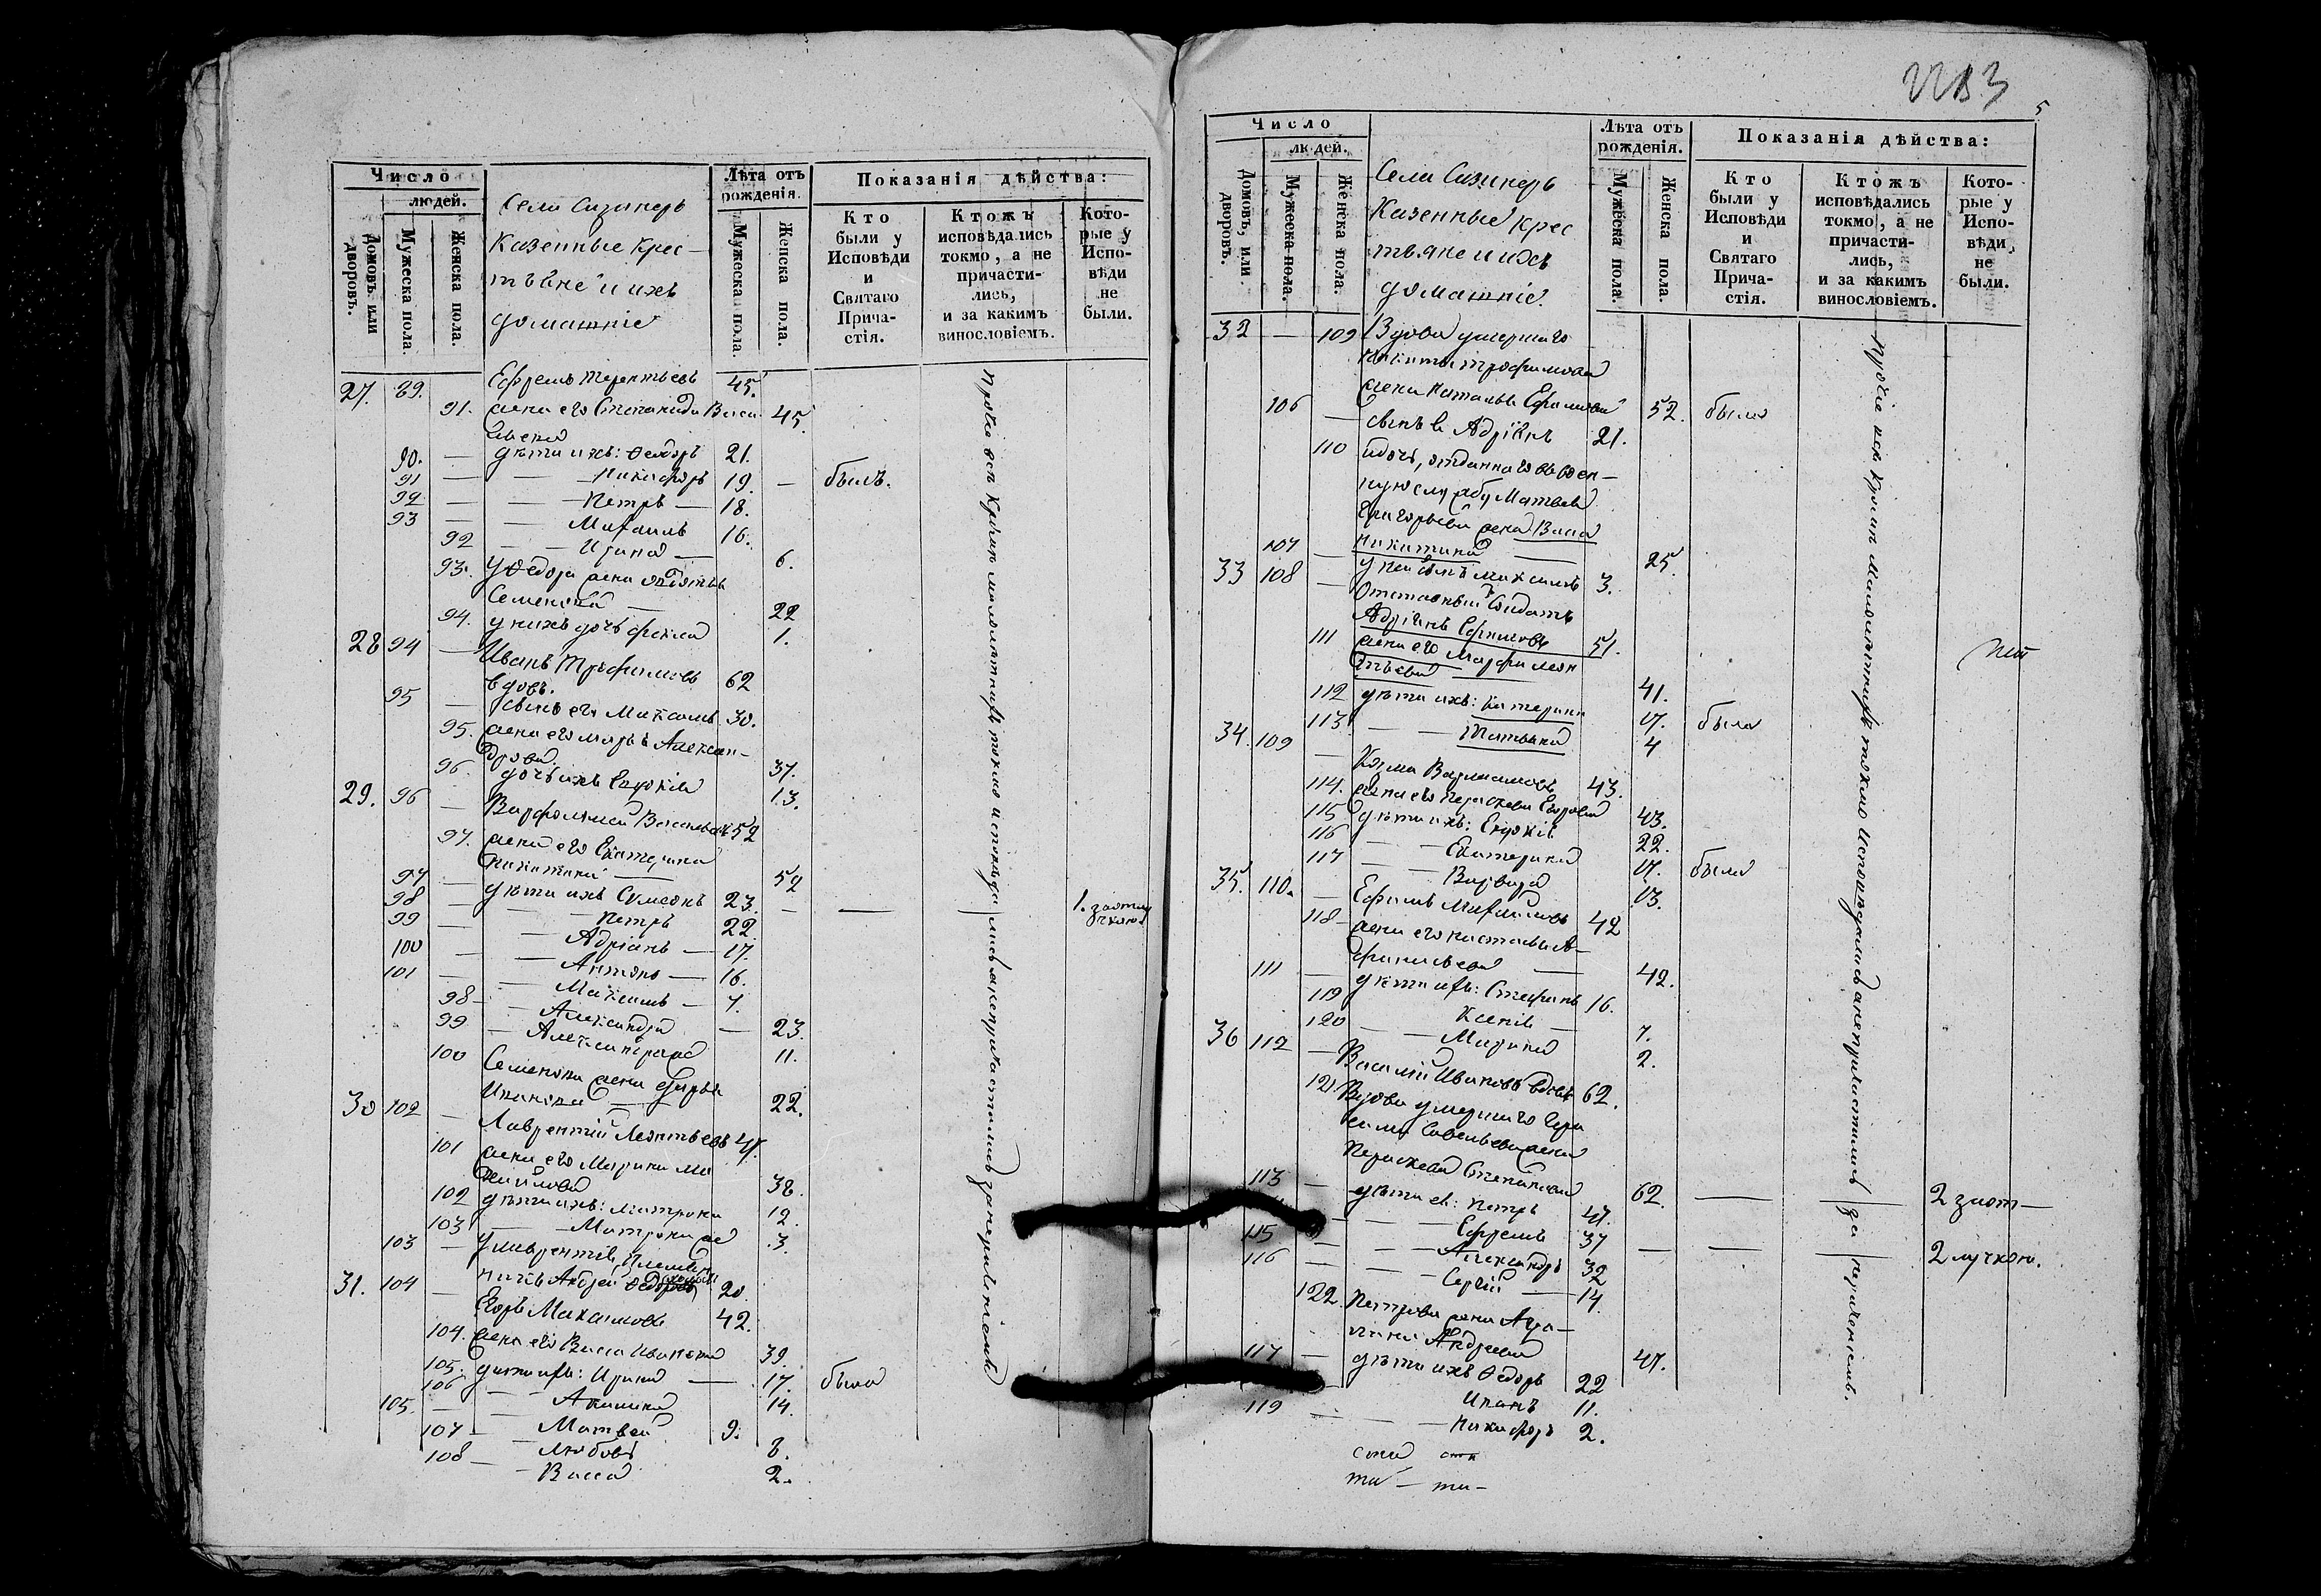 Число
людей.
Домовъ, или дворовъ.
Мужеска пола.
Женска пола.
Села
Казенные крес-
тьяне и ихъ
домашніе
Лѣта отъ
рожденія.
Мужеска пола.
Женска пола.
Показанія дѣйства:
Кто
были у
Исповѣди
и
Святаго
Прича-
стія.
Ктожъ
исповѣдались
токмо, а не
причасти-
лись,
и за какимъ
винословіемъ.
Кото-
рые у
Испо-
вѣди
не
были.
27. 89. Ефремъ Терентьевъ 45.
91. жена его Степанида Васи 45.
льева
90. — дѣти ихъ: Ѳеодоръ 21.
91 — — Никифоръ 19. — былъ.
92 — — Петръ — 18.
93 — — Михаилъ 16.
92 — — Ирина — 6.
93. у Ѳедора жена
Семенова — 22
94. у нихъ дочь Фекла 1.
28 94 — Иванъ Трофимовъ 62
вдовъ.
95 — сынъ его Максимъ 30.
95. жена его Марья Алексан-
дрова 37.
96. дочь ихъ Евдокія 13.
29. 96 — Варфоломей Васильевъ 52
97. жена его Екатерина
Никитина — 52
97 — дѣти ихъ Симеонъ 23. — — 1. за отлу
98 — — Петръ 22. чкою
99 — — Адріанъ — 17.
100 — — Антонъ — 16.
101 — — Максимъ — 7.
98 — — Александра — 23.
99 — Александра 11.
100 Семенова жена Дарья
Иванова — 22.
30 102 — Лаврентій Леонтьевъ 47.
101 жена его Марина Ми
хайлова 38.
102 дѣти ихъ: Матрона 12.
103 — — Матрона 3.
103 — у Лаврентія племян
никъ Андрей 20.
31. 104 — Егоръ Максимовъ 42.
104. жена его Васса Иванова 39.
105. дѣти ихъ: Ирина — 17. была
106 — — Акилина 14.
105. — — Матвей 9.
107 — — Любовь 8.
108 — — Васса 2.
Прочіе всѣ кромѣ малолѣтнихъ токмо исповѣдались а не причастились за нераченіемъ
5
Число
людей.
Домовъ, или дворовъ.
Мужеска пола.
Женска пола.
Села
Казенные крес
тьяне и ихъ
домашніе.
Лѣта отъ
рожденія.
Мужеска пола.
Женска пола.
Показанія дѣйства:
Кто
были у
Исповѣди
и
Святаго
Прича-
стія.
Ктожъ
исповѣдались
токмо, а не
причасти-
лись,
и за какимъ
винословіемъ.
Кото-
рые у
Испо-
вѣди
не
были.
32 — 109 Вдова умершаго
Никиты Трофимова
жена Наталья Ефимова 52. была
106 — сынъ ея Адріанъ 21.
110 отданнаго въ воен-
ную службу Матвея
Григорьева жена Васса
Никитина — 25.
107 — у ней сынъ Максимъ 3.
33 108 — Отставный солдатъ
Адріанъ Ефимовъ 51.
111 жена его Марфа Леон
тьева — 41.
112 дѣти ихъ: Катерина 17. была
113 — — Татьяна 4
34. 109 — Козма Варламовъ 43.
114. жена его Параскева Егорова 43.
115 дѣти ихъ: Евдокія 22.
116 — — Екатерина 17. была
117 — — Варвара 13.
35. 110. — Ефимъ Михайловъ 42
118 — жена его Наталья А-
фанасьева — 42.
111 — дѣти ихъ: Стефанъ 16.
119 Ксенія — 7.
120 — — Марина 2.
36 112 — Василій Ивановъ вдовъ 62.
121 Вдова умершаго Гера
сима Савельева жена
Параскева Степанова 62. — — 2 за от—
113 — дѣти ея: Петръ 47.
— — Ефремъ 37 — — 2 лучкою.
115 — — Александръ 32
116 — — Сергій — 14.
122. Петрова жена Ага-
Андреева 47.
117 — дѣти ихъ Ѳедоръ 22
Иванъ 11.
119 — — Никифоръ 2.
Прочіе всѣ кромѣ малолѣтнихъ токмо исповѣдались а не причастились за нераченіемъ.